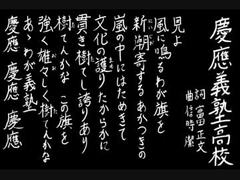 慶應義塾高校
詞 富田正文
曲 信時 潔
見よ
風に鳴るわが旗を
新潮寄するあかつきの
嵐の中にはためきて
文化の護りたからかに
貫き樹てし誇りあり
樹てんかな この旗を
強く雄々しく樹てんかな
あゝわが義塾
慶應 慶應 慶應